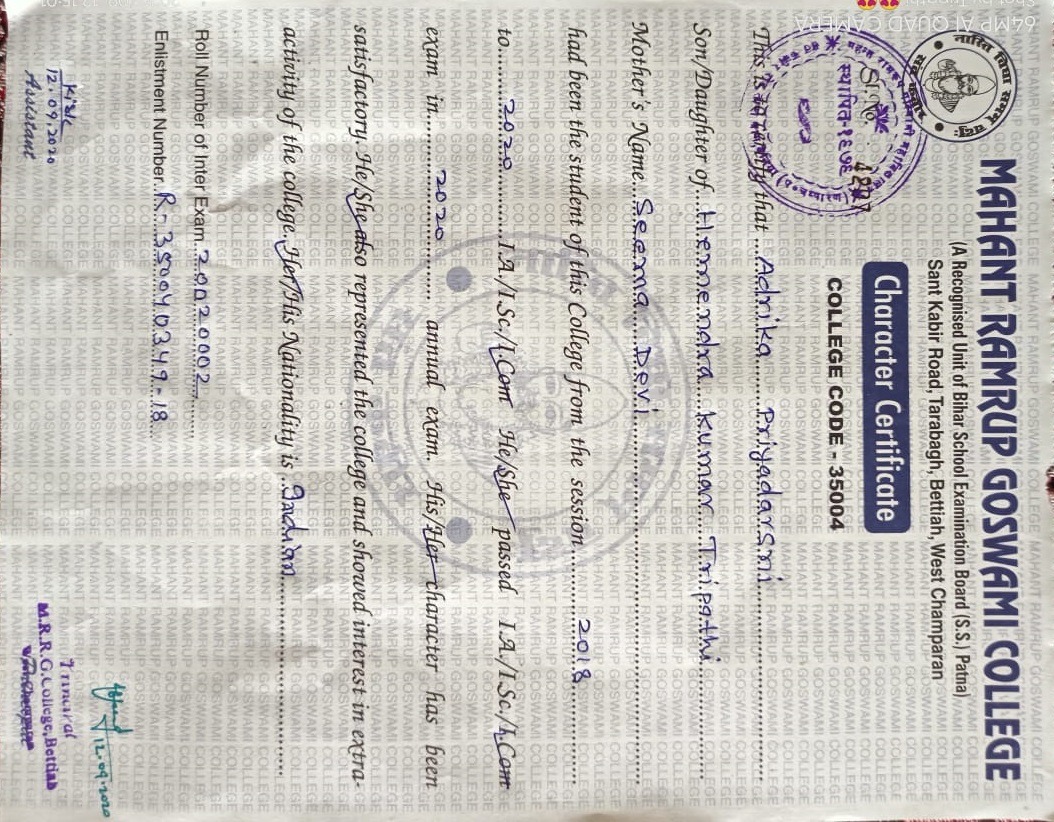 नास्ति विद्या समम् चक्षुः
MAHANT RAMRUP GOSWAMI COLLEGE
(A Recognised Unit of Bihar School Examination Board (S.S.) Patna)
Sant Kabir Road, Tarabagh, Bettiah, West Champaran
Character Certificate
COLLEGE CODE - 35004
Sl. No.
स्थापित-१९७६
This is to certify that ...Adrika...... Priyadarsni
Son/Daughter of...Hemendra...Kumar...Tripathi
Mother's Name...Seema...Devi
had been the student of this College from the session.........2018
to......2020.........I.A./I.Sc./I.Com He/She passed I.A./I.Sc./I.Com
exam in......2020......... annual exam. His/Her character has been
satisfactory. He/She also represented the college and showed interest in extra-
activity of the college. Her/His Nationality is ..Indian
Roll Number of Inter Exam..20020002
Enlistment Number..R-350040349-18
12.09.2020
Assistant
12.09.2020
M.R.R.G.College, Bettiah
64MP AI QUAD CAMERA